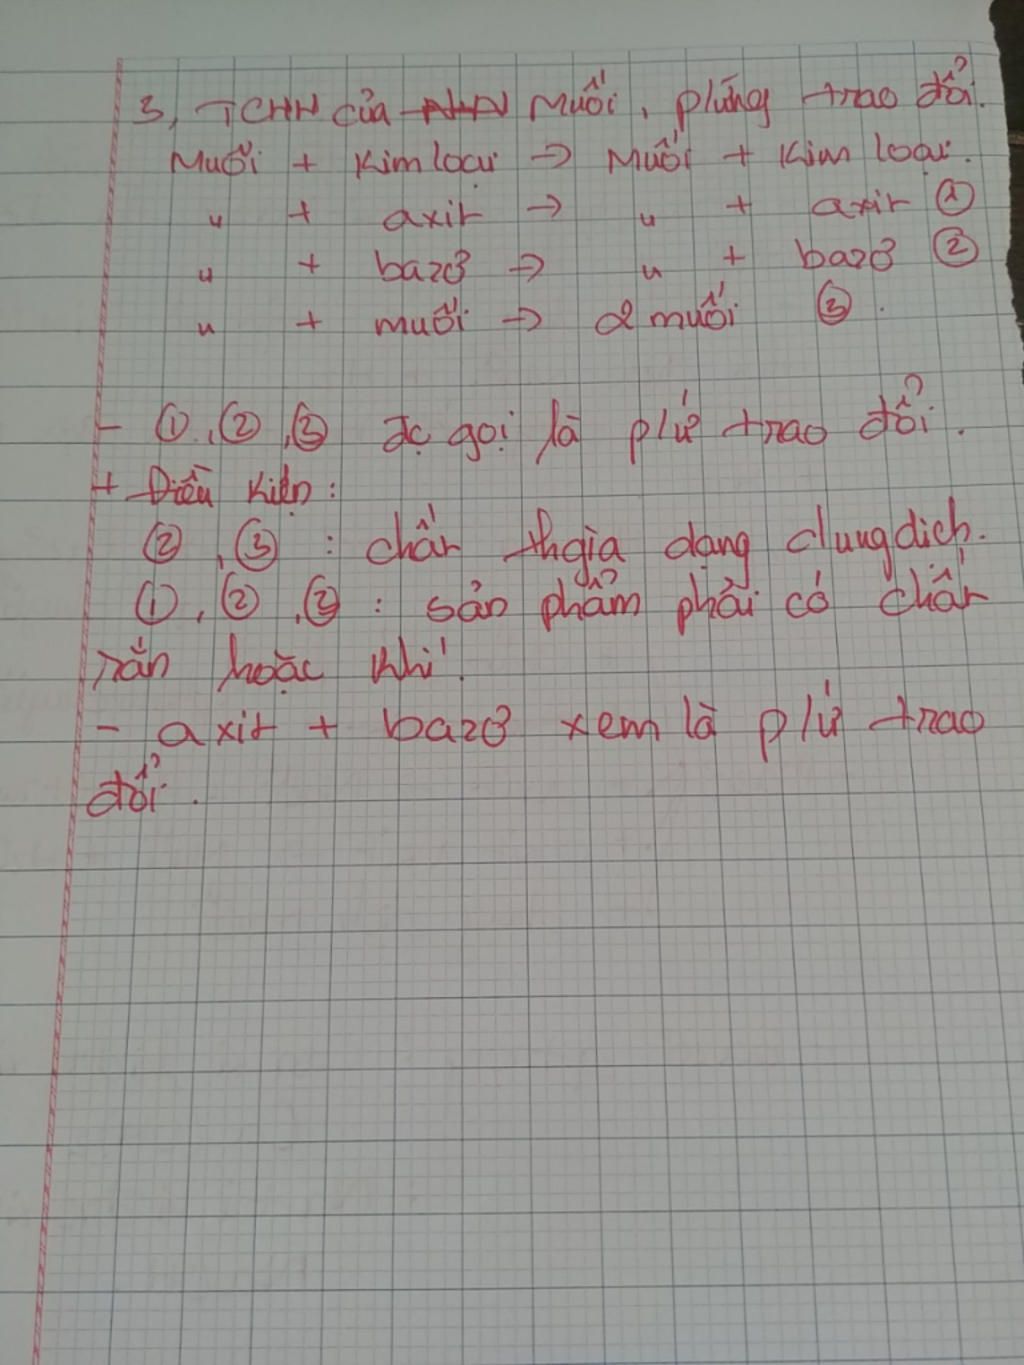 3, TCHH của muối, p/ứng trao đổi.
Muối + Kim loại → Muối + Kim loại.
" + axit → " + axit ①
" + bazơ → " + bazơ ②
" + muối → 2 muối ③.
- ①, ②, ③ đc gọi là p/ứ trao đổi.
+ Điều kiện:
②, ③ : chất thgia dạng dung dịch.
①, ②, ③ : sản phẩm phải có chất
rắn hoặc khí.
- axit + bazơ xem là p/ứ trao
đổi.